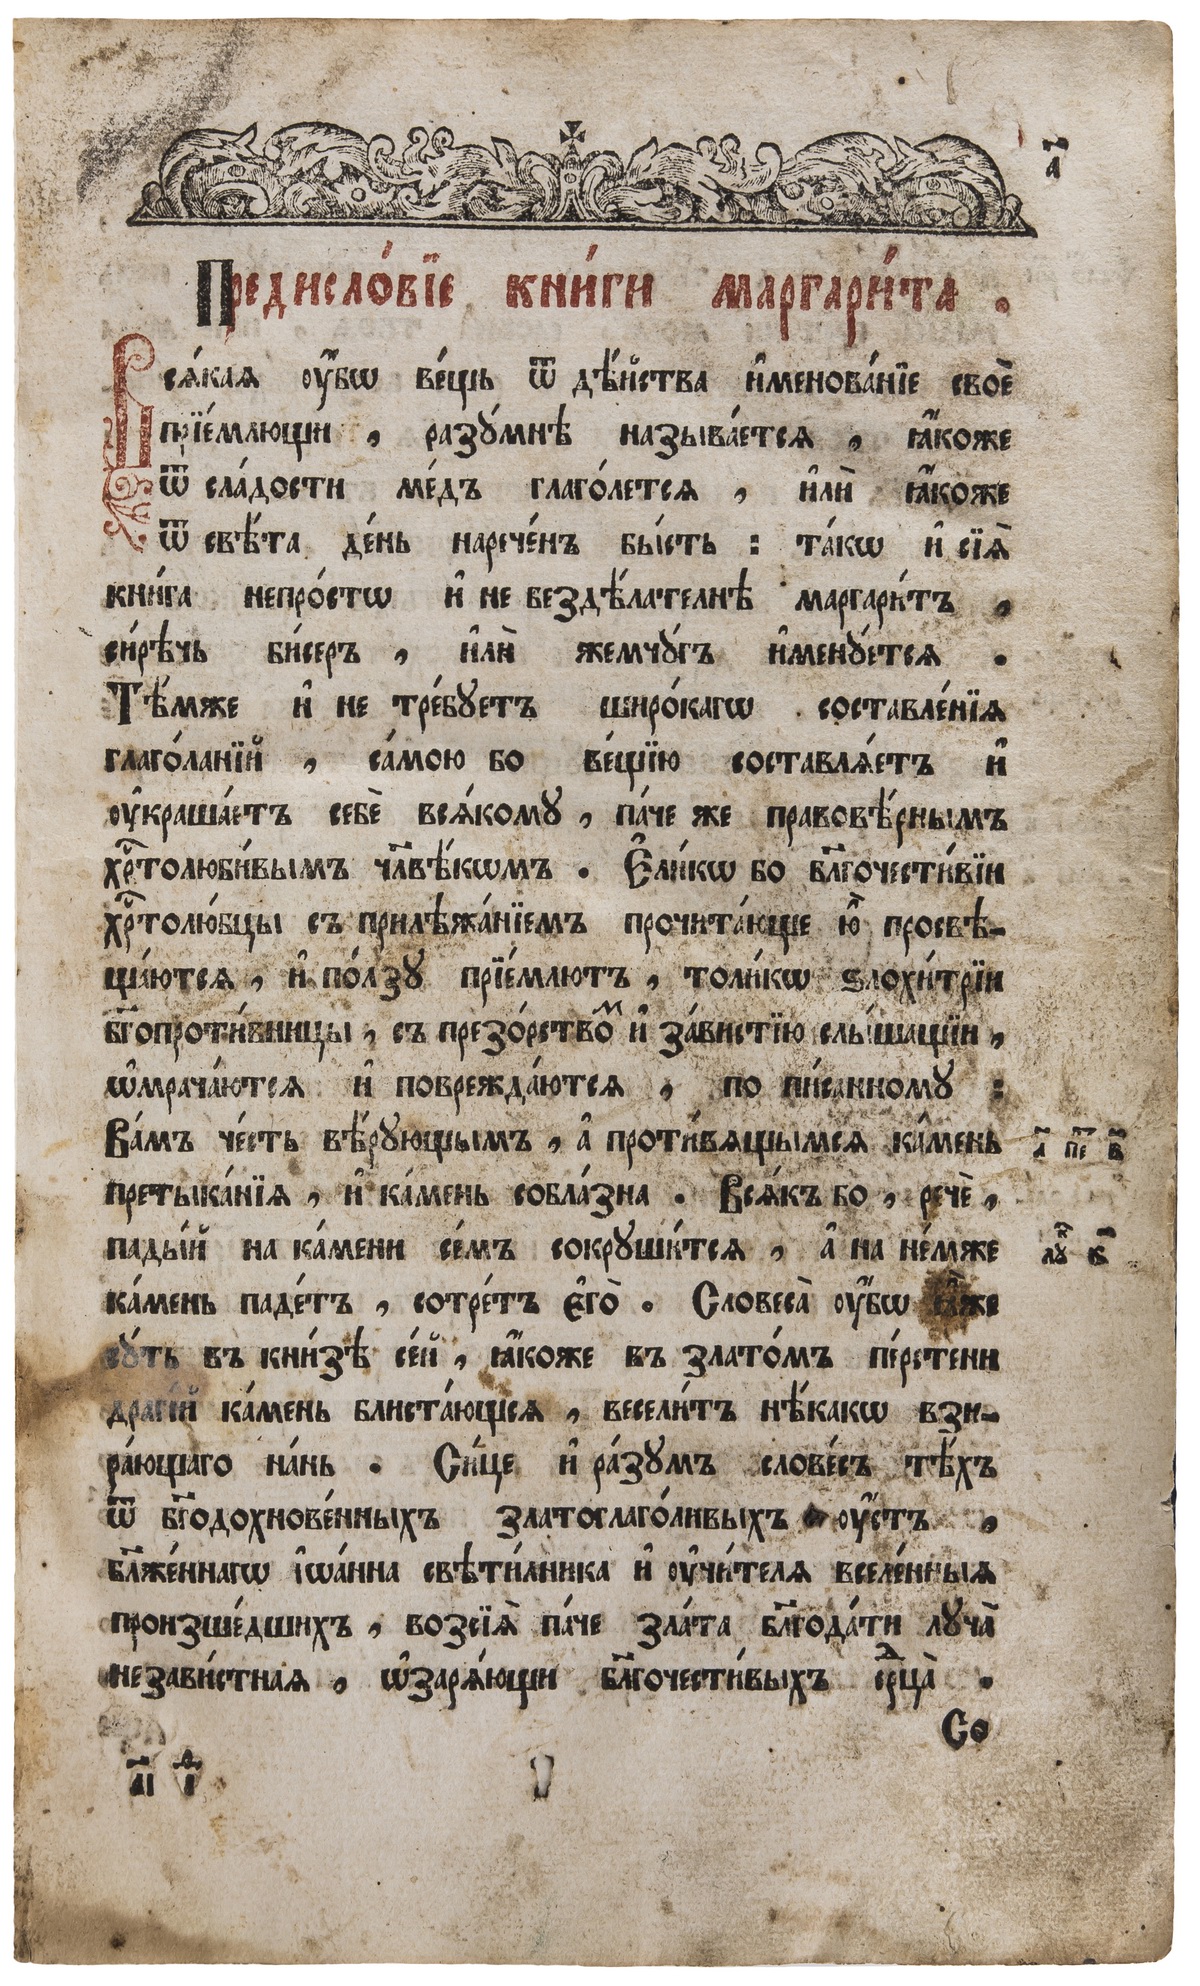 а҃
Предисло́вїе кни́ги маргари́та .
Вся́кая ᲂу҆́бѡ ве́щь ѿ дѣ́йства и҆менова́нїе своѐ
прїе́млющи , разꙋ́мнѣ называ́ется , ꙗ҆́коже
ѿ сла́дости ме́дъ глаго́лется , и҆лѝ ꙗ҆́коже
ѿ свѣ́та де́нь нарече́нъ бы́сть : та́кѡ и҆ сїѧ̀
кни́га непро́стѡ и҆ не бездѣ́лателнѣ маргари́тъ ,
си́рѣчь би́серъ , и҆лѝ жемчꙋ́гъ и҆менꙋ́ется .
Тѣ́мже и҆ не тре́бꙋетъ широ́кагѡ составле́нїѧ
глаго́ланїй , са́мою бо ве́щїю составлѧ́етъ и҆
ᲂу҆краша́етъ себѐ всѧ́комꙋ , па́че же правовѣ́рнымъ
хрⷭ҇толюби́вымъ чл҃вѣ́кѡмъ . Е҆ли́кѡ бо бл҃гочести́вїи
хрⷭ҇толю́бцы съ прилѣжа́нїемъ прочита́юще ю҆̀ просвѣ-
ща́ютсѧ , и҆ по́лзꙋ прїе́млютъ , толи́кѡ ѕлохи́трїи
бг҃опроти́вницы , съ презо́рствоⷨ и҆ за́вистїю слы́шащїи ,
ѡ҆мрача́ютсѧ и҆ поврежда́ютсѧ , по пи́санномꙋ :
Ва́мъ че́сть вѣ́рꙋющымъ , а҆ проти́вѧщымсѧ ка́мень
а҃ пе҃ в҃
претыка́нїѧ , и҆ ка́мень собла́зна . Всѧ́къ бо , речѐ ,
пады́й на ка́мени се́мъ сокрꙋши́тсѧ , а҆ на не́мже
лꙋⷦ҇ к҃
ка́мень паде́тъ , сотре́тъ е҆го̀ . Словеса̀ ᲂу҆́бѡ ꙗ҆̀же
сꙋ́ть въ кни́зѣ се́й , ꙗ҆́коже въ злато́мъ пе́рстени
драгі́й ка́мень блиста́ющсѧ , весели́тъ нѣ́какѡ взи-
ра́ющаго на́нь . Си́це и҆ ра́зꙋмъ слове́съ тѣ́хъ
ѿ бг҃одохнове́нныхъ златоглаго́ливыхъ ᲂу҆́стъ ,
бл҃же́ннагѡ і҆ѡа́нна свѣти́лника и҆ ᲂу҆чи́телѧ вселе́нныѧ
произше́дшихъ , возсїѧ̀ па́че зла́та бл҃года́ти лꙋча̀
незави́стнаѧ , ѡ҆зарѧ́ющи бл҃гочести́выхъ срⷣца̀ .
Со